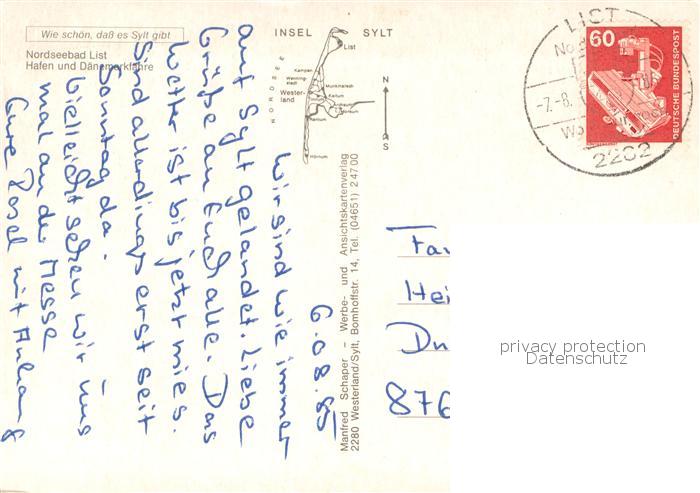 Wie schön, daß es Sylt gibt
Nordseebad List
Hafen und Dänemarkfähre
INSEL SYLT
NORDSEE
List
Kampen
Wenning-
stedt
Munkmarsch
Wester-
land
Keitum
Tinnum
Archsum
Morsum
Rantum
Hörnum
N
S
6.08.85
wir sind wie immer
auf Sylt gelandet. Liebe
Grüße an Euch alle. Das
Wetter ist bis jetzt mies.
Sind allerdings erst seit
Sonntag da.
Vielleicht sehen wir uns
mal an der Messe
Eure Rosel mit Anhang
Manfred Schaper – Werbe- und Ansichtskartenverlag
2280 Westerland/Sylt, Bomhoffstr. 14, Tel. (04651) 2 47 00
LIST
-7.-8.
2282
60
DEUTSCHE BUNDESPOST
Fa
Hei
Du
876
privacy protection
Datenschutz